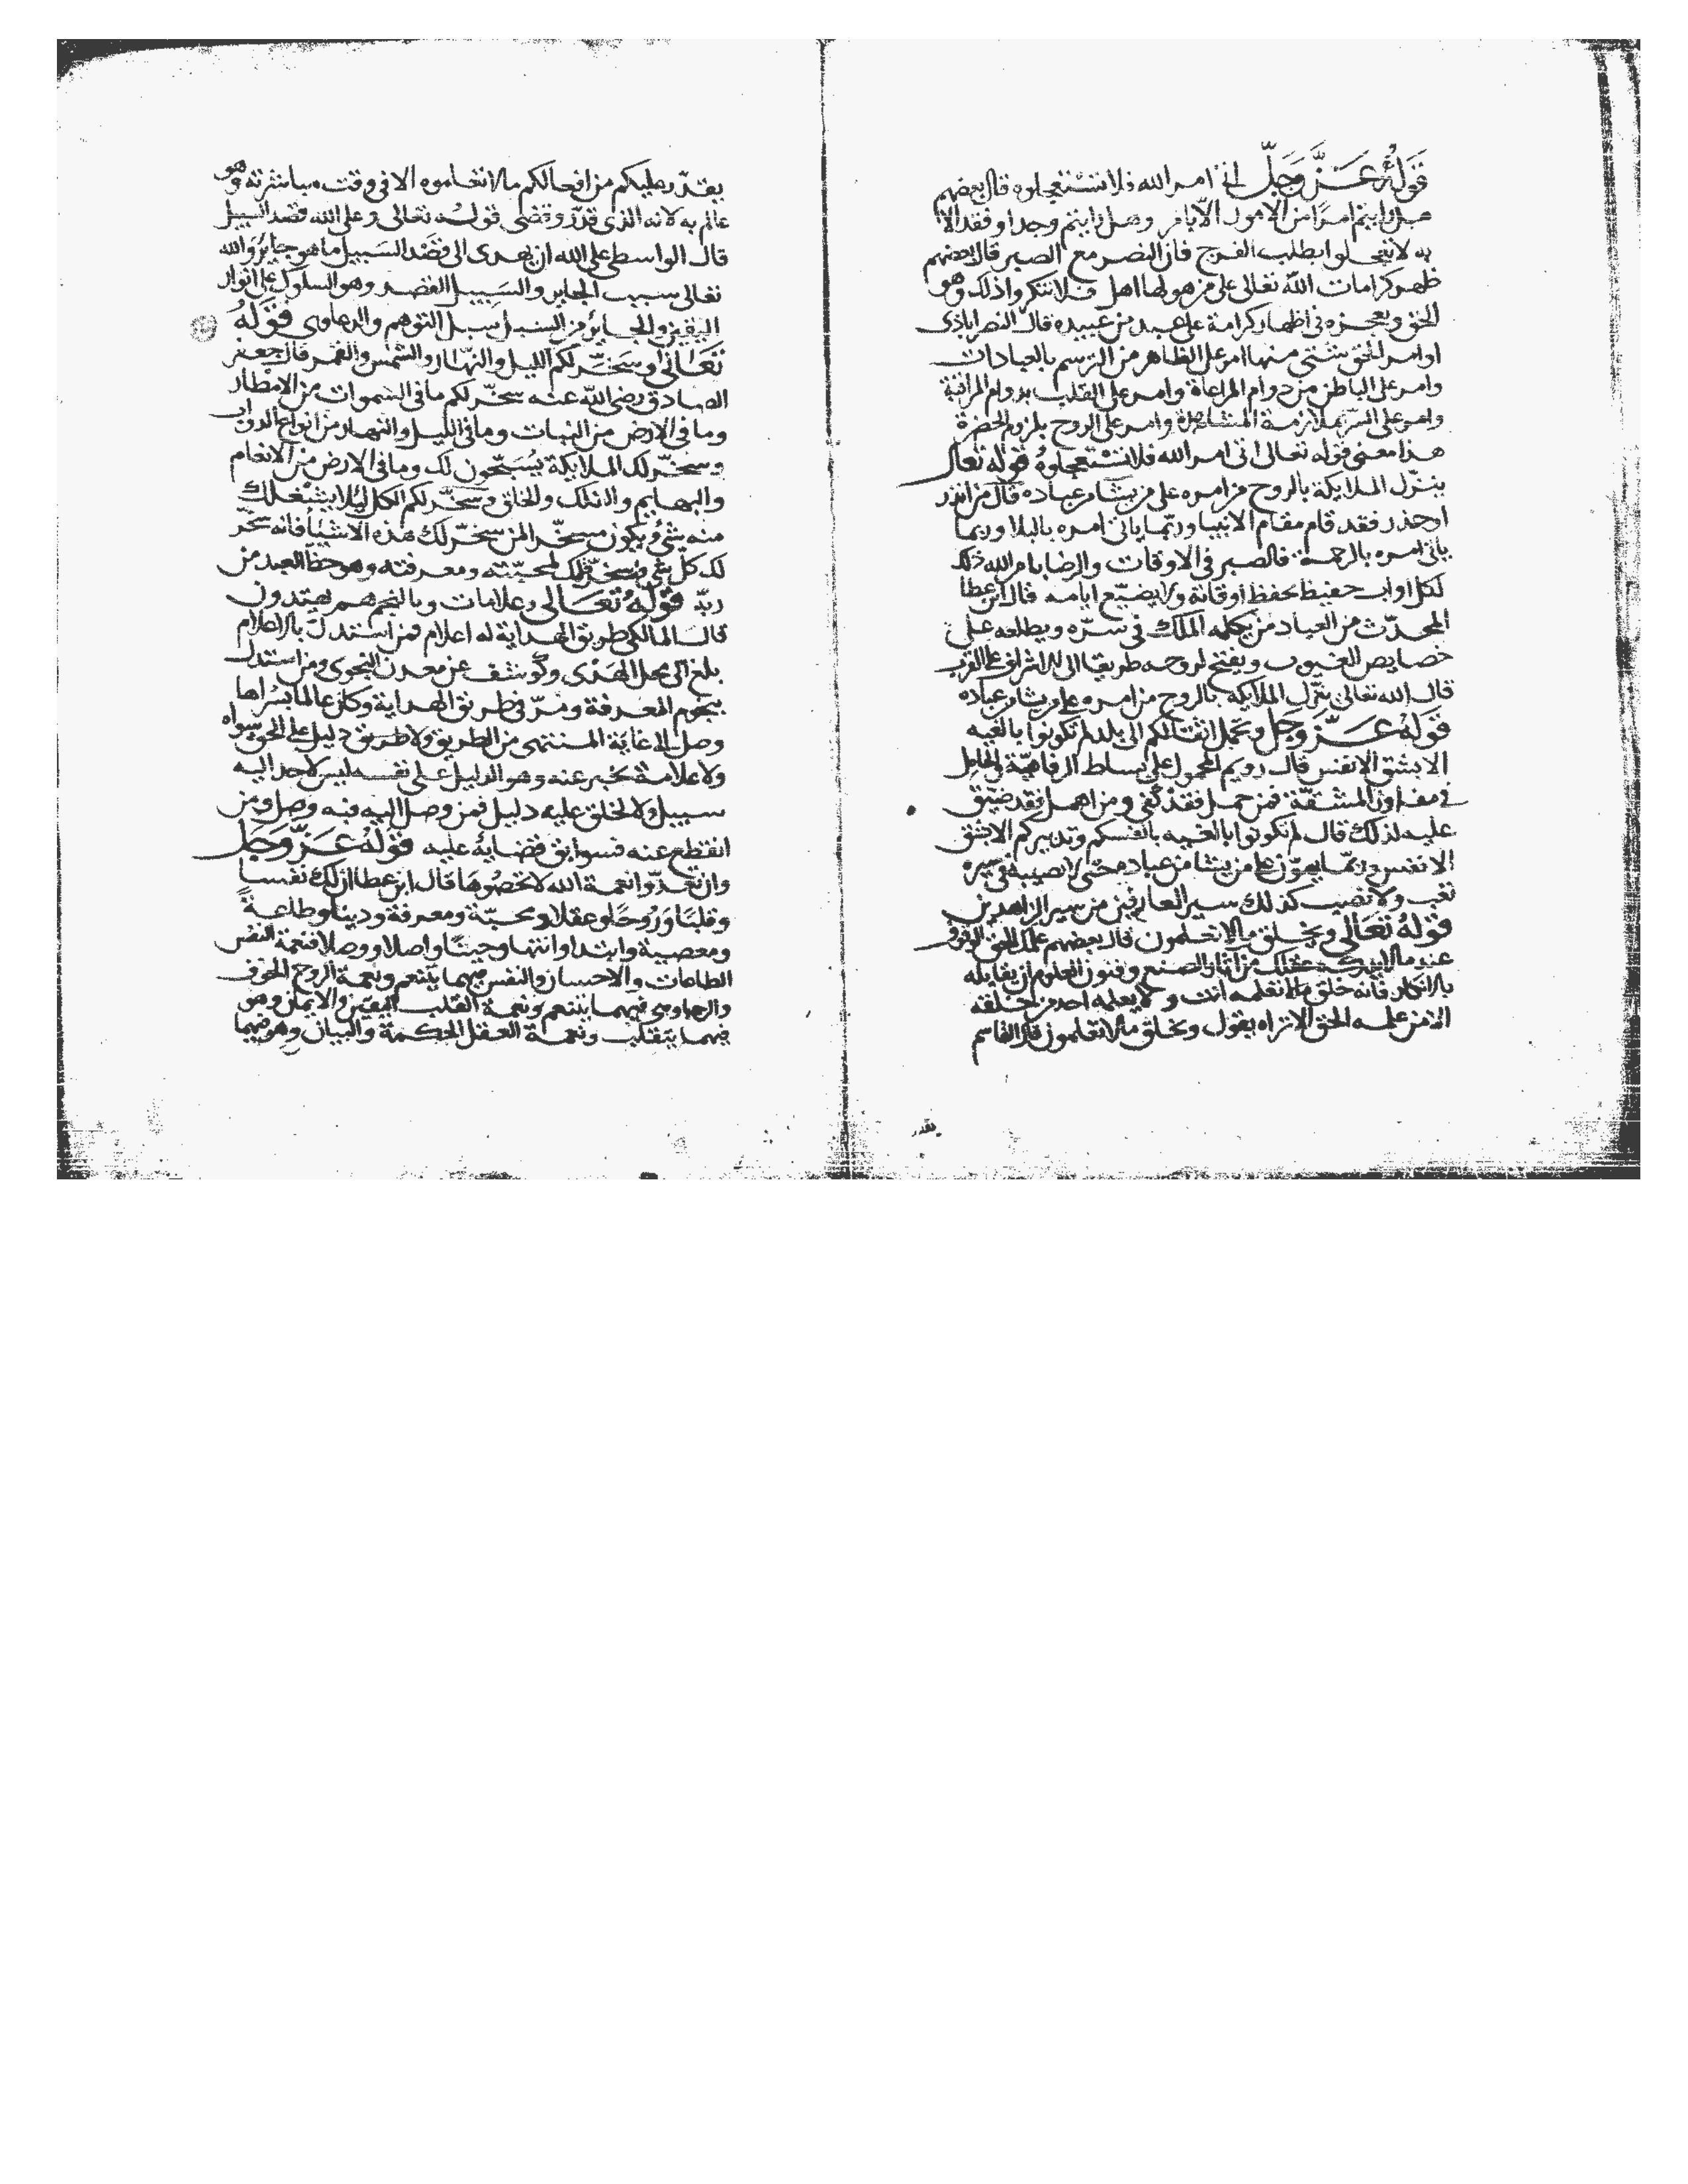 قوله عز وجل اتى امر الله فلا تستعجلوه قال بعضهم
هل رايتم امرا من الامور الا بامر وهل رايتم وجدا وفقدا الا
به لا تتعجلوا بطلب الفرج فان النصر مع الصبر قال بعضهم
ظهور كرامات الله تعالى على من هو لها اهل فلا تنكروا ذلك وهو
الحق ويعجزه في اظهار كرامة على عبد من عبيده قال النصراباذى
اوامر الحق شتى منها امر على الظاهر من الترسم بالعبادات
وامر على الباطن من دوام المراعاة وامر على القلب بدوام المراقبة
وامر على السر بملازمة المشاهدة وامر على الروح بلزوم الحضرة
هذا معنى قوله تعالى اتى امر الله فلا تستعجلوه قوله تعالى
ينزل الملايكة بالروح من امره على من يشا من عباده قال من انذر
او حذر فقد قام مقام الانبيا وربما ياتى امره بالبلا وربما
ياتى امره بالرحمة فالصبر في الاوقات والرضا بامر الله ذلك
لكل اواب حفيظ يحفظ اوقاته ولا يضيع ايامه قال ابن عطا
المحدث من العباد من يكلمه الملك في سره ويطلعه على
خصايص الغيوب ويفتح لروحه طريقا الى الاشراف على القرب
قال الله تعالى ينزل الملايكة بالروح من امره على من يشا من عباده
قوله عز وجل وتحمل اثقالكم الى بلد لم تكونوا بالغيه
الا بشق الانفس قال رويم المحمول على بساط الرفاهية والحامل
في مفاوز المشقة فمن حمل فقد كفى ومن اهمل فقد ضيق
عليه لذلك قال لم تكونوا بالغيه بانفسكم وتدبيركم الا بشق
الانفس وربما يهون على من يشا من عباده حتى لا نصيبه في سيره
تعب ولا نصيب كذلك سير العارفين من سير الزاهدين
قوله تعالى ويخلق ما لا تعلمون قال بعضهم علمك الحق الوقوف
عند ما لا يدركه عقلك من اثار الصنع وفنون العلوم ان يقابله
بالانكار فانه خلق ما لا تعلمه انت ولا يعلمه احد من خلقه
الا من علمه الحق الا تراه يقول ويخلق ما لا تعلمون قال القاسم
يقدر
يقدر عليكم من افعالكم ما لا تعلموه الا في وقت مباشرته وهو
عالم به لانه الذى قدر وقضى قوله تعالى وعلى الله قصد السبيل
قال الواسطى على الله ان يهدى الى قصد السبيل ما هو جاير والله
تعالى سبب الجاير والسبيل القصد وهو السلوك على انوار
اليقين والجاير من السبيل سبيل التوهم والدعاوى قوله
تعالى وسخر لكم الليل والنهار والشمس والقمر قال جعفر
الصادق رضى الله عنه سخر لكم ما في السموات من الامطار
وما في الارض من النبات وما في الليل والنهار من انواع الدواب
وسخر لك الملايكة يسبحون لك وما في الارض من الانعام
والبهايم والفلك والخلق وسخر لكم الكل ليلا يشغلك
منه شيء ويكون مسخرا لمن سخر لك هذه الاشيا فانه سخر
لك كل شي وسخر قلبك لمحبته ومعرفته وهو حظ العبد من
ربه قوله تعالى وعلامات وبالنجم هم يهتدون
قال المالكى طريق الهداية له اعلام فمن استدل بالاعلام
بلغ الى محل الهدى وكوشف عن معدن النجوى ومن استدل
بنجوم المعرفة ومر في طريق الهداية وكان عالما بسراها
وصل الى غاية المنتهى من الطريق ولا طريق دليل على الحق سواه
ولا علامة تخبر عنه وهو الدليل على نفسه ليس لاحد اليه
سبيل ولا لخلق عليه دليل فمن وصل اليه فبه وصل ومن
انقطع عنه فسوابق قضايه عليه قوله عز وجل
وان تعدوا نعمة الله لا تحصوها قال ابن عطا ان لك نفسا
وقلبا وروحا وعقلا ومحبة ومعرفة ودينا وطاعة
ومعصية وابتدا وانتها وحينا واصلا ووصلا فنعمة النفس
الطاعات والاحسان والنفس فيهما يتنعم ونعمة الروح الخوف
والرجا وهي فيهما يتنعم ونعمة القلب اليقين والايمان وهو
فيهما يتقلب ونعمة العقل الحكمة والبيان وهو فيهما